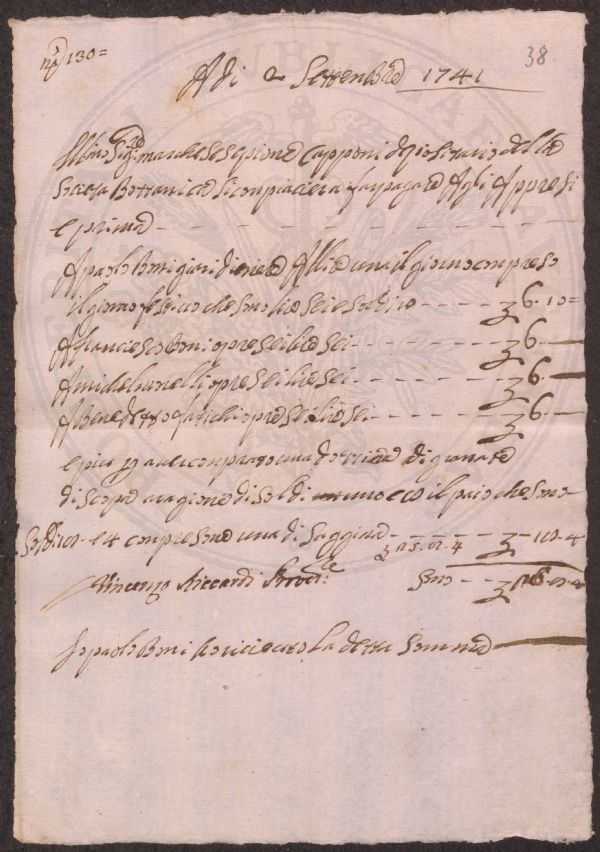 nº 130=
38
Adi 2 Settenbre 1741
Ill.mo Sig.re marchese Scipione Capponi depositario della
Societa Bottanica Si compiacera far pagare Agli Appresi
e prima
A paolo Boni giardiniere Allire una il giorno conpreso
il giorno festiuo che sono lire sei e soldi 10 6.10=
A francesco Boni opre sei lire sei 6.
A michele opre sei lire sei 6.
A Benedetto opre sei lire sei 6.
e piu p auer conprato una dozzina di granate
di scope a ragione di soldi uno e il paio che sono
Soldi e 4 conpresone una di Saggina 4
Vincenzo Riccardi Proue.re Sono
Io paolo Boni ò riceuuto La detta Somma